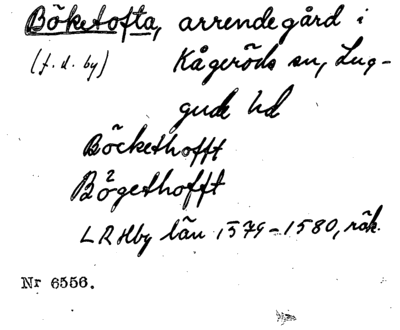 Böketofta, arrendegård i
(f. d. by) Kågeröds sn, Lug-
gude hd
Böckethofft
Bögethofft
LRHby län 1579-1580, räk.
Nr 6556.